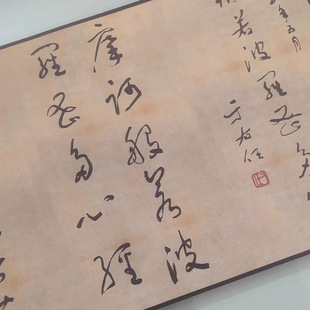 年五月
般若波羅蜜多
于右任
摩訶般若波
羅蜜多心經